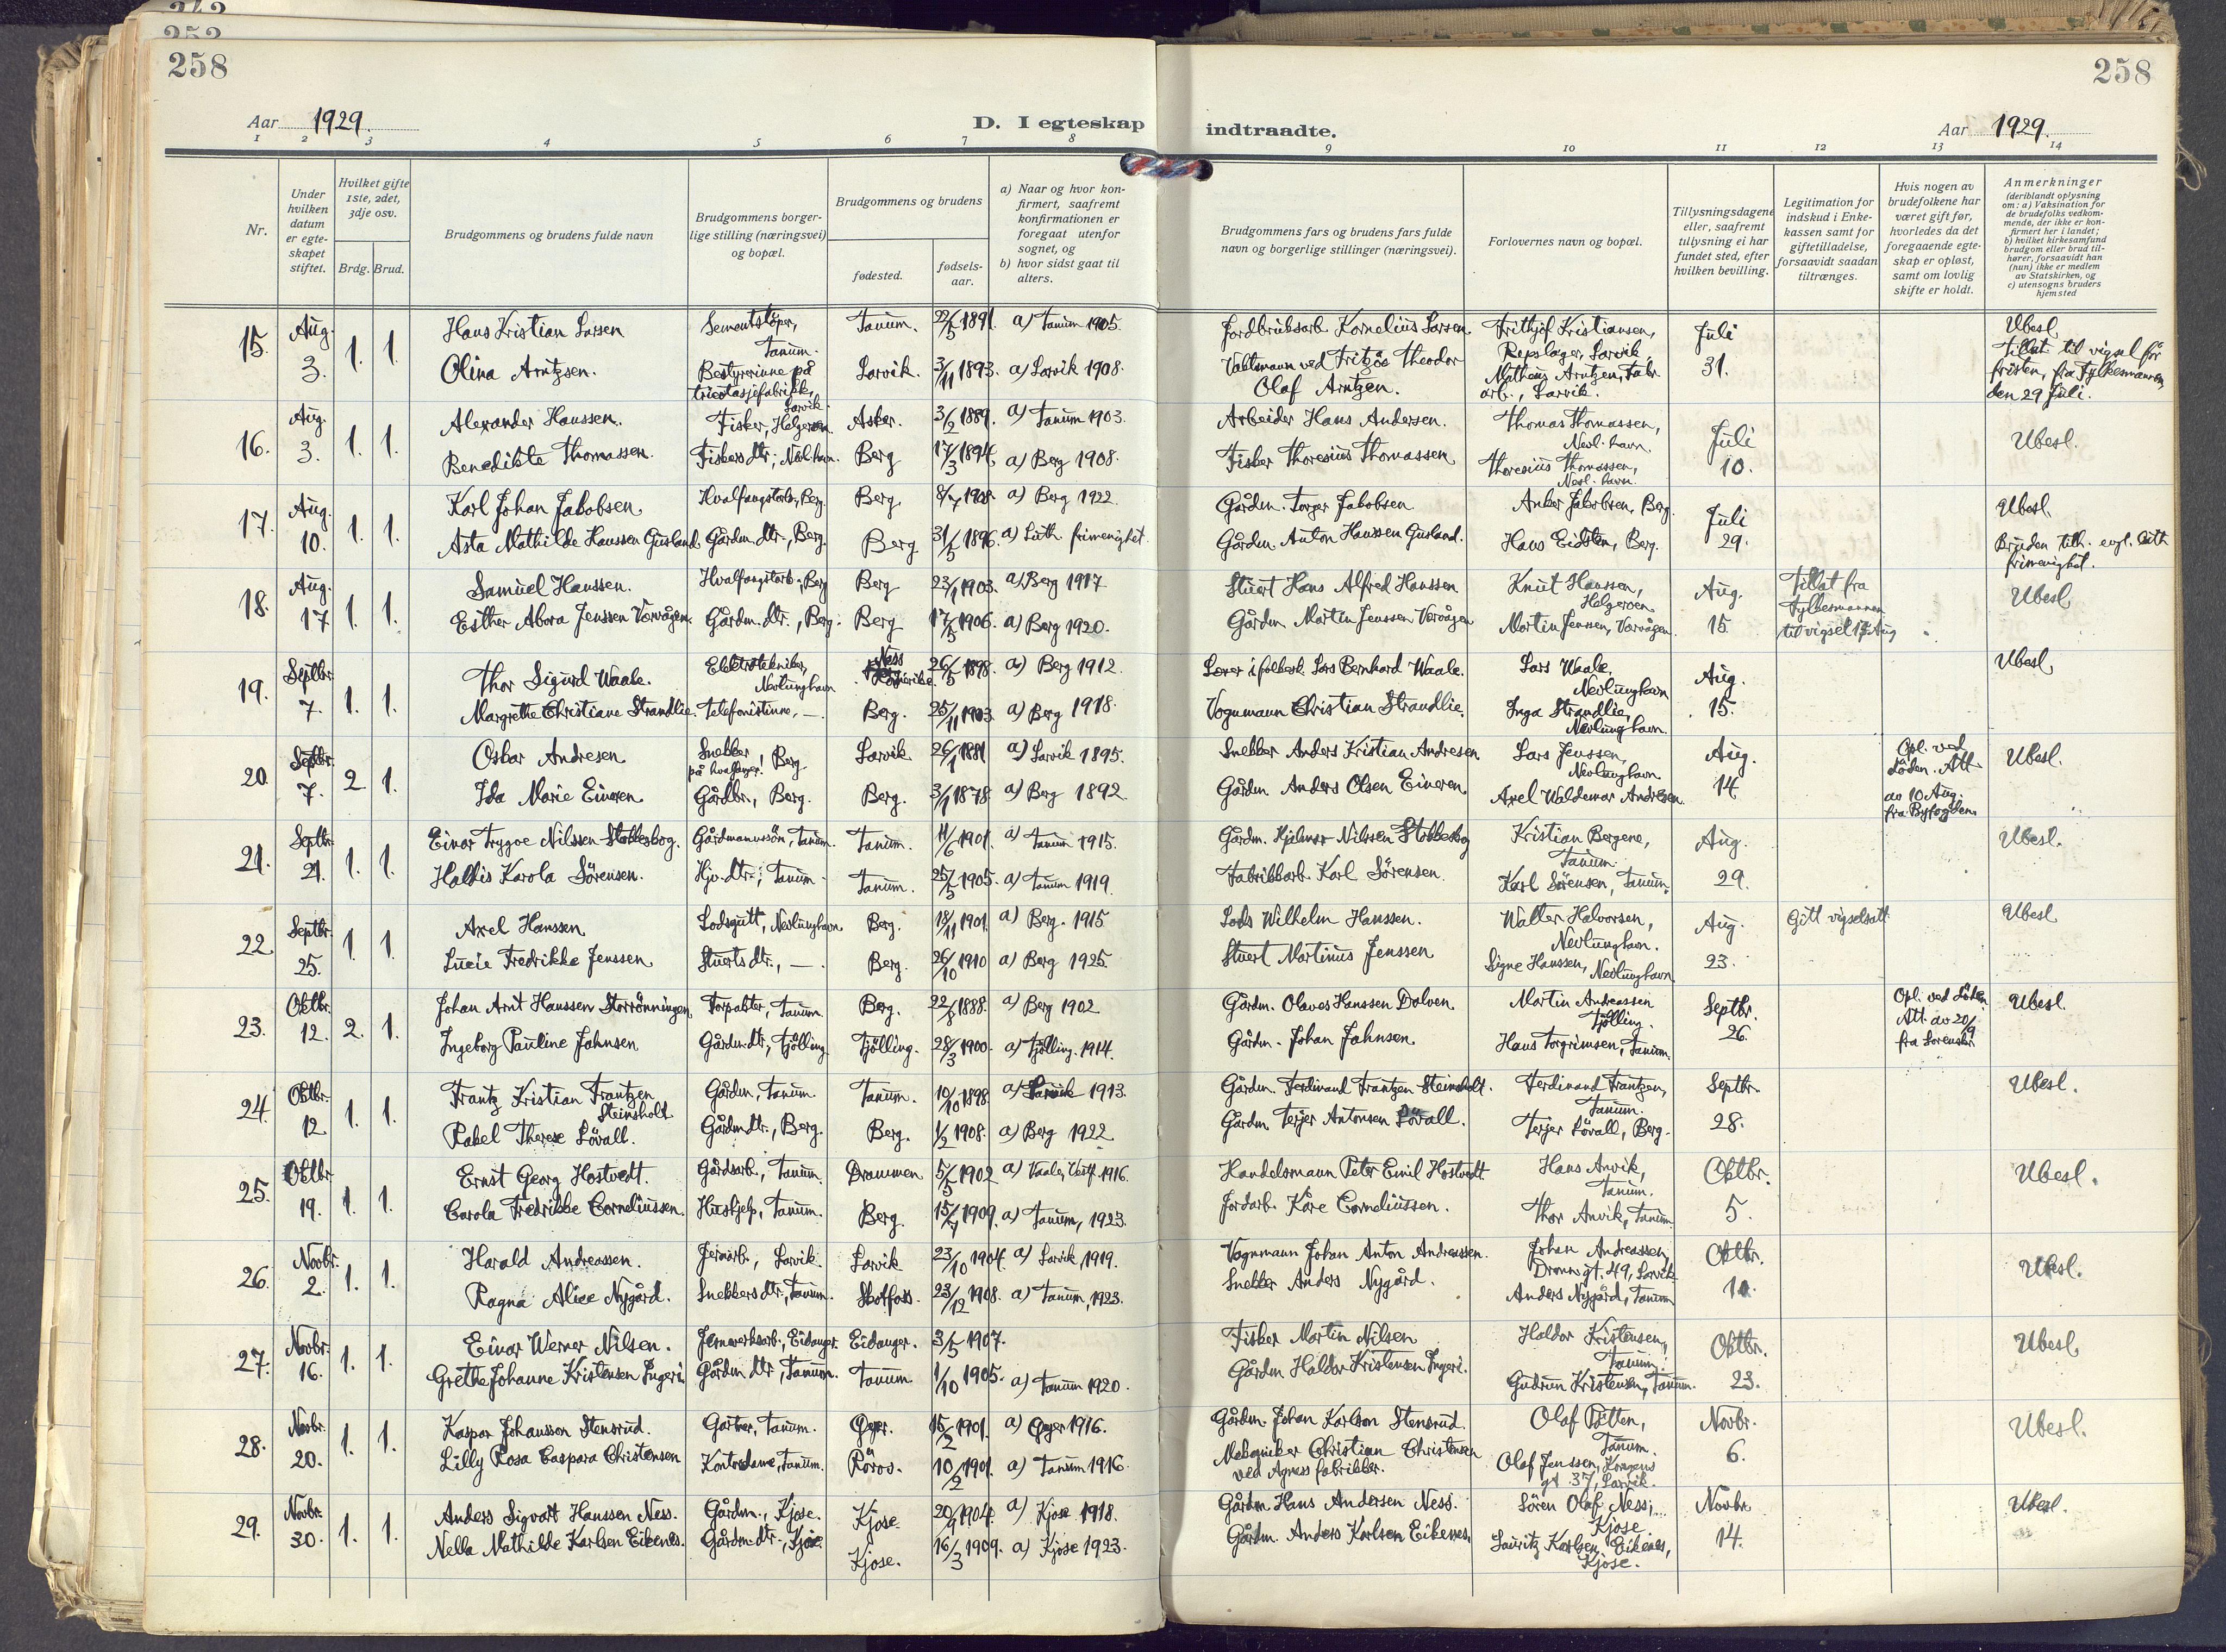 243
252
258
258
Aar 1929.
D. I egteskap indtraadte.
Aar 1929.
1 2 3 4 5 6 7 8 9 10 11 12 13 14
Nr.
Under hvilken datum er egteskapet stiftet.
Hvilket gifte 1ste, 2det, 3dje osv.
Brdg. Brud.
Brudgommens og brudens fulde navn
Brudgommens borgerlige stilling (næringsvei) og bopæl.
Brudgommens og brudens
fødested.
fødselsaar.
a) Naar og hvor konfirmert, saafremt konfirmationen er foregaat utenfor sognet, og
b) hvor sidst gaat til alters.
Brudgommens fars og brudens fars fulde navn og borgerlige stillinger (næringsvei).
Forlovernes navn og bopæl.
Tillysningsdagene eller, saafremt tillysning ei har fundet sted, efter hvilken bevilling.
Legitimation for indskud i Enkekassen samt for giftetilladelse, forsaavidt saadan tiltrænges.
Hvis nogen av brudefolkene har været gift før, hvorledes da det foregaaende egteskap er opløst, samt om lovlig skifte er holdt.
Anmerkninger (deriblandt oplysning om: a) Vaksination for de brudefolks vedkommende, der ikke er konfirmert her i landet; b) hvilket kirkesamfund brudgom eller brud tilhører, forsaavidt han (hun) ikke er medlem av Statskirken, og c) utensogns bruders hjemsted
15. Aug. 3. 1. 1. Hans Kristian Larsen Sementstöper, Tanum. Tanum. 22/5 1891. a) Tanum 1905. Jordbruksarb. Kornelius Larsen. Frithjof Kristiansen, Repslager, Larvik. Juli 31. Ubesl. Tillat til vigsel før fristen, fra Fylkesmannen den 29 Juli.
Olina Arntzen. Bestyrerinne på tricotasjefabrikk, Larvik. Larvik. 3/11 1893. a) Larvik 1908. Vaktmann ved Fritzøe Theodor Olaf Arntzen. Matheus Arntzen, Fabr. arb., Larvik.
16. Aug. 3. 1. 1. Alexander Hanssen. Fisker, Helgeroen. Asker. 3/2 1889. a) Tanum 1903. Arbeider Hans Andersen. Thomas Thomassen, Nevl. havn. Juli 10. Ubesl.
Benedikte Thomassen. Fiskers dtr., Nevl. havn. Berg 17/3 1894. a) Berg 1908. Fisker Thoresius Thomassen Thoresius Thomassen, Nevl. havn.
17. Aug. 10. 1. 1. Karl Johan Jakobsen Hvalfangstarb., Berg. Berg. 8/7 1908. a) Berg 1922. Gårdm. Torger Jakobsen. Anker Jakobsen, Berg. Juli 29. Ubesl.
Asta Mathilde Hanssen Gusland Gårdm. dtr., Berg. Berg 31/5 1896. a) Luth. frimenighet. Gårdm. Anton Hanssen Gusland. Hans Eidsten, Berg. Bruden tilh. evgl. luth frimenighet.
18. Aug. 17 1. 1. Samuel Hanssen. Hvalfangstarb., Berg Berg 23/1 1903. a) Berg 1917 Stuert Hans Alfred Hanssen Knut Hanssen, Helgeroen. Aug. 15. Tillat fra Fylkesmannen til vigsel 17 Aug. Ubesl.
Esther Abora Jenssen Vervågen. Gårdm. dtr., Berg. Berg 17/5 1906. a) Berg 1920. Gårdm. Martin Jenssen Vervågen Martin Jenssen, Vervågen.
19. Septbr. 7. 1. 1. Thor Sigurd Waale. Elektrotekniker, Nevlunghavn Ness 26/5 1898. a) Berg 1912. Lærer i folkesk. Lars Bernhard Waale. Lars Waale. Nevlunghavn Aug. 15. Ubesl.
Margrethe Christiane Strandlie. Telefonistinne, —. Berg. 25/11 1903. a) Berg 1918. Vognmann Christian Strandlie. Inga Strandlie, Nevlunghavn.
20. Septbr. 7. 2. 1. Oskar Andresen. Snekker på hvalfanger, Berg. Larvik. 26/1 1881. a) Larvik 1895. Snekker Anders Kristian Andresen. Lars Jenssen, Nevlunghavn Aug. 14. Opl. ved döden. Att. av 10 Aug. fra Byfogden. Ubesl.
Ida Marie Eineren. Gårdbr., Berg. Berg. 3/1 1878. a) Berg 1892. Gårdm. Anders Olsen Eineren. Axel Waldemar Andresen.
21. Septbr. 21. 1. 1. Einar Trygve Nilssen Stokkesbog. Gårdmannssön, Tanum. Tanum. 11/6 1901. a) Tanum 1915. Gårdm. Hjalmar Nilssen Stokkesbog Kristian Bergene, Tanum. Aug. 29. Ubesl.
Haldis Karola Sörensen. Hjv. dtr., Tanum. Tanum. 25/5 1905. a) Tanum 1919. Fabrikkarb. Karl Sörensen. Karl Sörensen, Tanum.
22. Septbr. 25. 1. 1. Axel Hanssen Losgutt, Nevlunghavn Berg. 18/11 1901. a) Berg. 1915 Lods Wilhelm Hanssen. Walter Halvorsen, Nevlunghavn. Aug. 23. Gitt vigselsatt. Ubesl.
Lucie Fredrikke Jenssen Stuerts dtr., —. Berg. 26/10 1910 a) Berg 1925. Stuert Martinus Jenssen Signe Hanssen, Nevlunghavn
23. Oktbr. 12. 2. 1. Johan Arnt Hanssen Storrönningen Forpakter, Tanum. Berg. 22/8 1888. a) Berg 1902 Gårdm. Olaves Hanssen Dolven. Martin Andreassen Tjölling. Septbr. 26. Opl. ved döden Att. av 20/9 fra Sorenskr. Ubesl.
Ingeborg Pauline Jahnsen Gårdm. dtr., Tjölling. Tjölling. 28/3 1900. a) Tjölling. 1914. Gårdm. Johan Jahnsen. Hans Torgrimsen, Tanum.
24. Oktbr. 12. 1. 1. Frantz Kristian Frantzen Steinsholt Gårdm., Tanum. Tanum. 10/10 1898. a) Larvik 1913. Gårdm. Ferdinand Frantzen Steinsholt. Ferdinand Frantzen, Tanum. Septbr. 28. Ubesl.
Rakel Therese Lövall. Gårdm dtr., Berg. Berg. 1/2 1908. a) Berg 1922. Gårdm. Terjer Antonsen Lövall. Terjer Lövall, Berg.
25. Oktbr. 19. 1. 1. Ernst Georg Hostvedt. Gårdsarb., Tanum. Drammen 5/5 1902 a) Vaale, Vestf. 1916. Handelsmann Peter Emil Hostvedt. Hans Anvik, Tanum. Oktbr. 5. Ubesl.
Carola Fredrikke Corneliussen. Hushjelp, Tanum. Berg. 15/7 1909. a) Tanum, 1923. Jordarb. Kåre Corneliussen. Thor Anvik, Tanum.
26. Novbr. 2. 1. 1. Harald Andreassen. Jernarb., Larvik. Larvik 23/10 1904. a) Larvik, 1919. Vognmann Johan Anton Andreassen. Johan Andreassen, Dronn. gt. 49, Larvik Oktbr. 10. Ubesl.
Ragna Alice Nygård. Snekkers dtr., Tanum. Skotfoss. 23/12 1908. a) Tanum, 1923. Snekker Anders Nygård. Anders Nygård, Tanum
27. Novbr. 16. 1. 1. Einar Werner Nilsen. Jernverksarb., Eidanger. Eidanger. 3/5 1907. Fisker Martin Nilsen Haldor Kristensen, Tanum. Oktbr. 23. Ubesl.
Grethe Johanne Kristensen Ingeri. Gårdm dtr., Tanum. Tanum. 1/10 1905. a) Tanum 1920. Gårdm. Haldor Kristensen Ingeri. Gudrun Kristensen, Tanum.
28. Novbr. 20. 1. 1. Kaspar Johansson Stensrud. Gartner, Tanum. Øyer. 15/2 1901. a) Øyer 1916. Gårdm. Johan Karlson Stensrud. Olaf, Tanum. Novbr. 6. Ubesl.
Lilly Rosa Caspara Christensen Kontordame, Tanum. Röros. 10/2 1901. a) Tanum 1916. Mekaniker Christian Christensen ved Agnes fabrikker. Olaf Jenssen, Kongens gt 37, Larvik.
29. Novbr. 30. 1. 1. Anders Sigvart Hanssen Ness. Gårdm., Kjose. Kjose. 20/9 1904. a) Kjose 1918. Gårdm. Hans Andersen Ness. Sören Olaf Ness, Kjose Novbr. 14. Ubesl.
Nella Mathilde Karlsen Eikenes. Gårdm. dtr., Kjose. Kjose. 16/3 1909. a) Kjose 1923. Gårdm. Anders Karlsen Eikenes. Lauritz Karlsen Eikenes, Kjose.